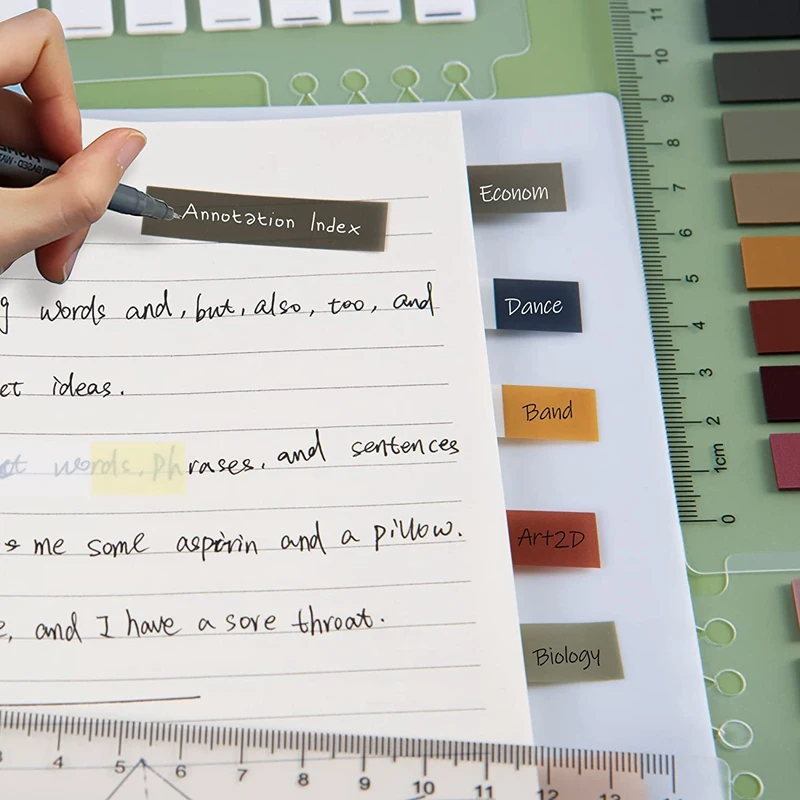 Annotation Index
g words and, but, also, too, and
et ideas.
words, phrases, and sentences
me some aspirin and a pillow.
e, and I have a sore throat.
Econom
Dance
Band
Art2D
Biology
11
10
9
8
7
6
5
4
3
2
1cm
0
4 5 6 7 8 9 10 11 12 13